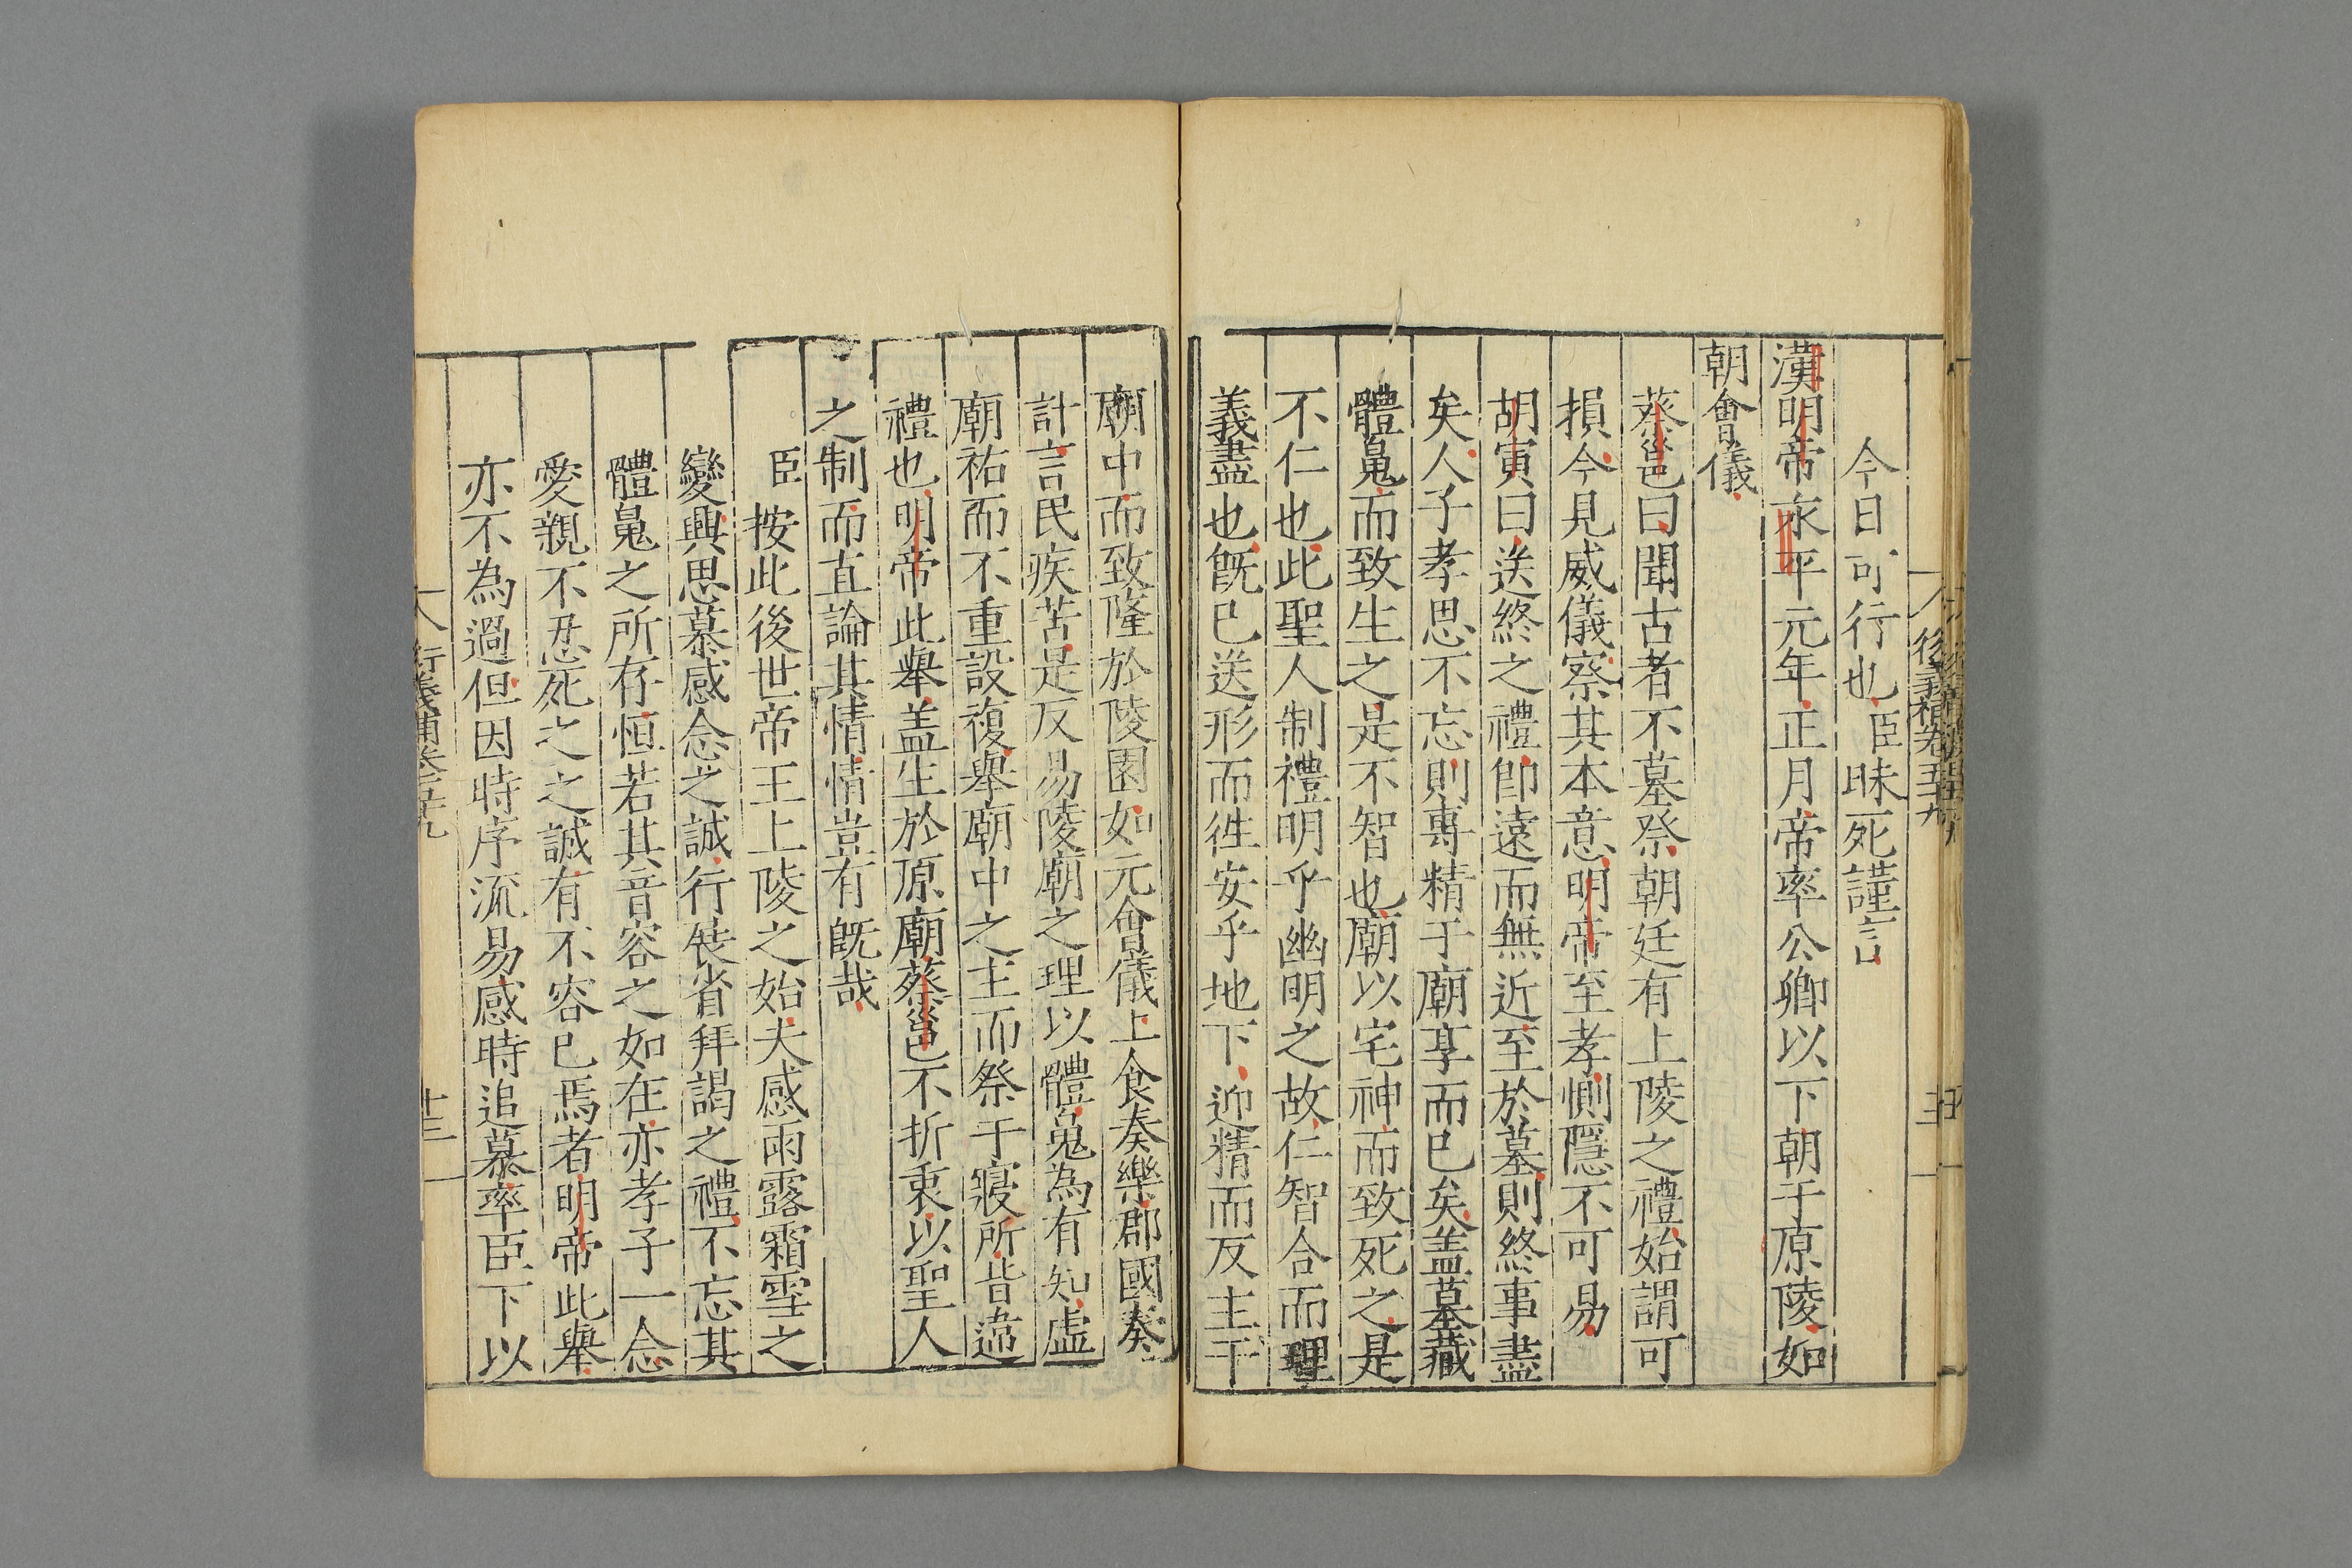 今日可行也臣昧死謹言
漢明帝永平元年正月帝率公卿以下朝于原陵如
朝會儀
蔡邕曰聞古者不墓祭朝廷有上陵之禮始謂可
損今見威儀察其本意明帝至孝惻隱不可易
胡寅曰送終之禮卽遠而無近至於墓則終事盡
矣人子孝思不忘則專精于廟享而已矣盖墓藏
體䰟而致生之是不智也廟以宅神而致死之是
不仁也此聖人制禮明乎幽明之故仁智合而理
義盡也旣已送形而徃安乎地下迎精而反主于
廟中而致隆於陵園如元會儀上食奏樂郡國奏
計言民疾苦是反易陵廟之理以體䰟為有知虛
廟祐而不重設複舉廟中之主而祭于寢所皆違
禮也明帝此舉盖生於原廟蔡邕不折衷以聖人
之制而直論其情情豈有旣哉
臣按此後世帝王上陵之始夫感雨露霜雪之
變興思慕感念之誠行展省拜謁之禮不忘其
體䰟之所存恒若其音容之如在亦孝子一念
愛親不忍死之之誠有不容已焉者明帝此舉
亦不為過但因時序流易感時追慕率臣下以
行義補卷五十九
十三